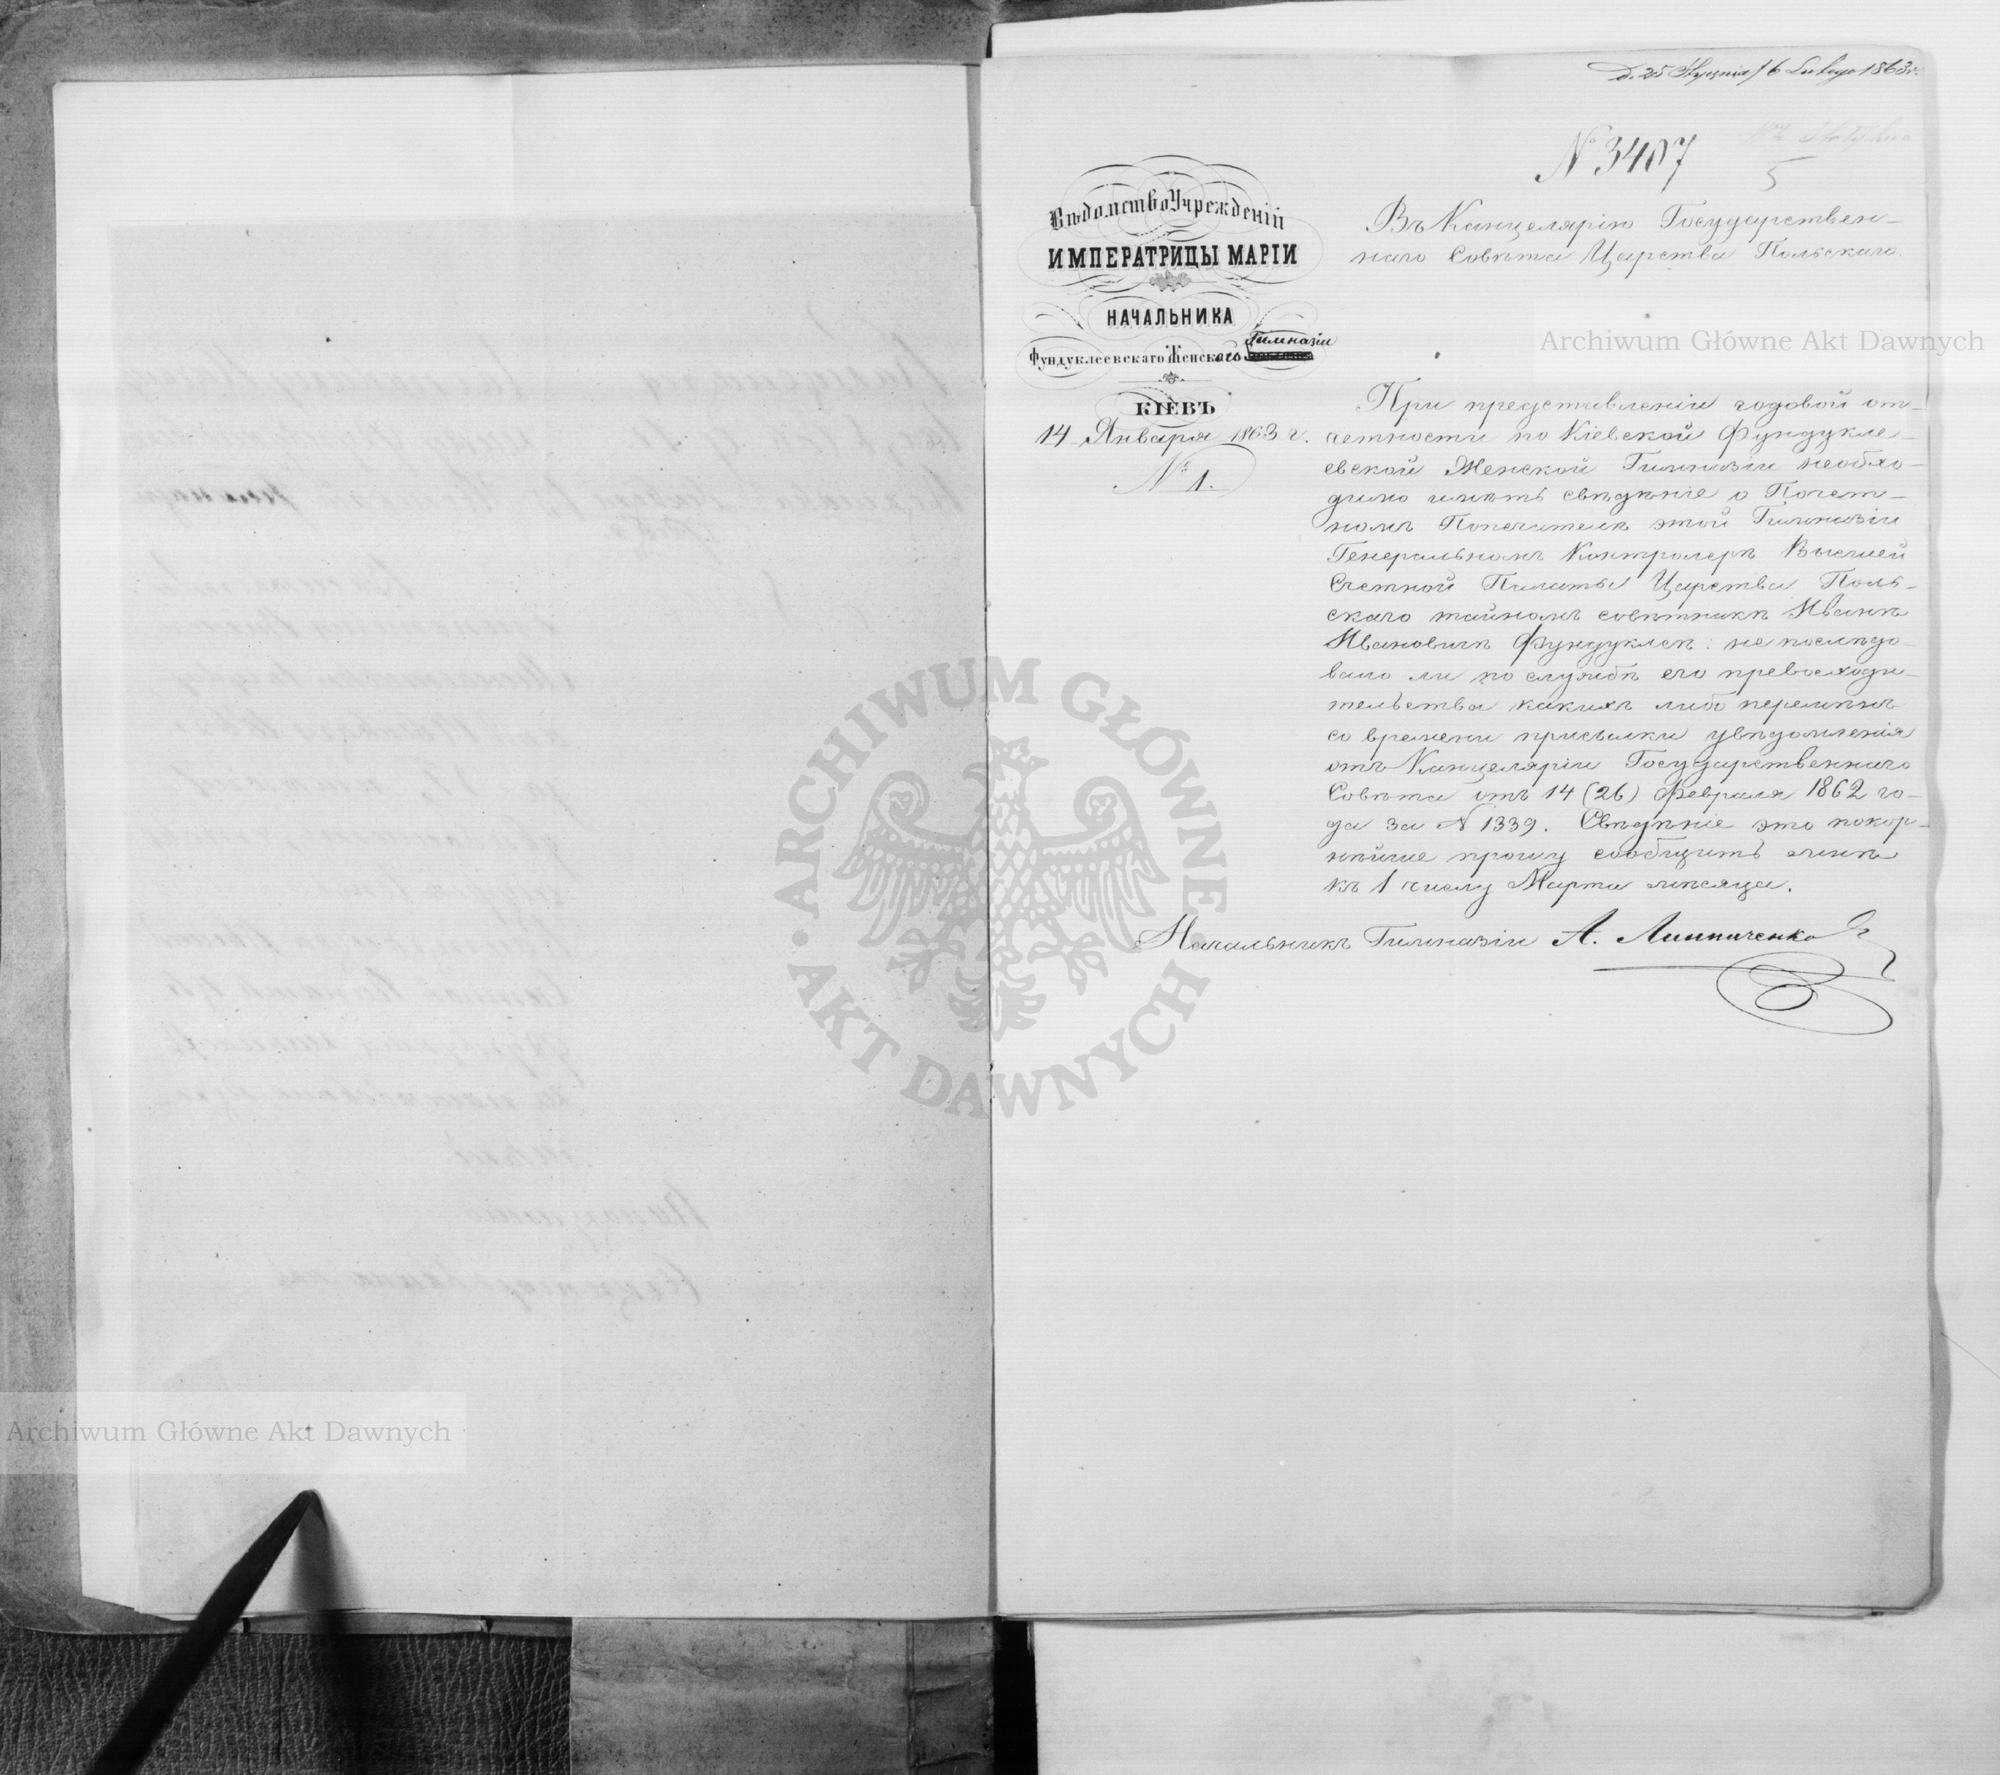 D. 25 Stycznia / 6 Lutego 1863 r.
№ 3407
5
Вѣдомство Учрежденій
ИМПЕРАТРИЦЫ МАРІИ
НАЧАЛЬНИКА
Гимназіи
Фундуклеевскаго Женской
КІЕВЪ
14 Января 1863 г.
№ 1.
Въ Канцелярію Государствен-
наго Совѣта Царства Польскаго.
При представленіи годовой от-
четности по Кіевской Фундукле-
евской Женской Гимназіи необхо-
димо имѣть свѣдѣніе о Почет-
номъ Попечителѣ этой Гимназіи
Генеральномъ Контролерѣ Высшей
Счетной Палаты Царства Поль-
скаго тайномъ совѣтникѣ Иванѣ
Ивановичѣ Фундуклеѣ: не послѣдо-
вало ли по службѣ его превосходи-
тельства какихъ либо перемѣнъ
со времени присылки увѣдомленія
отъ Канцеляріи Государственнаго
Совѣта отъ 14 (26) Февраля 1862 го-
да за № 1339. Свѣдѣніе это покор-
нѣйше прошу сообщить мнѣ
къ 1 числу Марта мѣсяца.
Начальникъ Гимназіи А. Линниченко
Archiwum Główne Akt Dawnych
ARCHIWUM GŁÓWNE
AKT DAWNYCH
Archiwum Główne Akt Dawnych